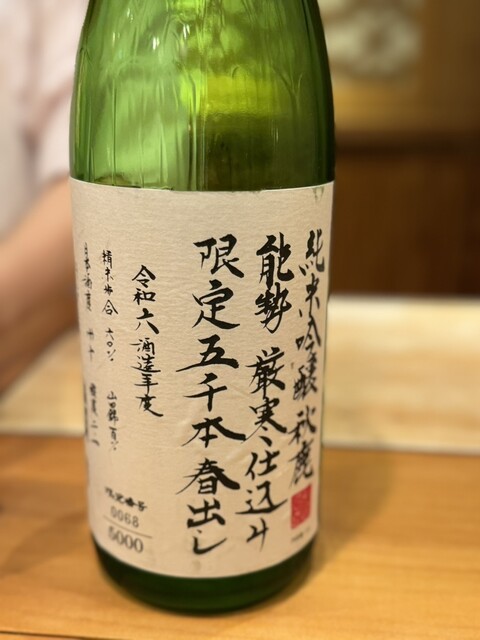 純米吟醸 秋鹿
能勢 厳寒仕込み
限定五千本春出し
令和六酒造年度
精米歩合 六〇% 山田錦百%
日本酒度 +十
限定番号
0068
5000